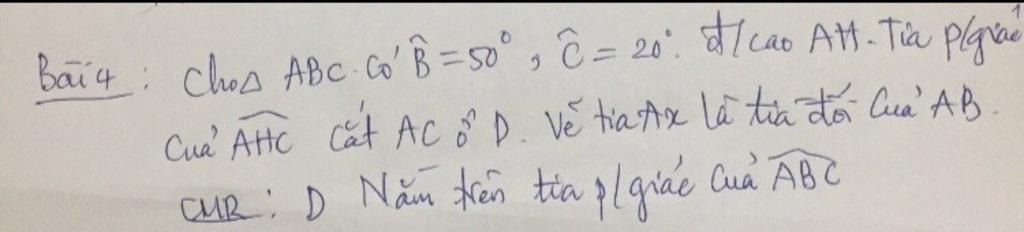 Bài 4 : Cho Δ ABC. Có B̂ = 50°, Ĉ = 20°. đ/cao AH. Tia p/giác
Của AHC Cắt AC ở D. Vẽ tia Ax là tia đối Của AB.
CMR : D Nằm trên tia p/giác Của ABC